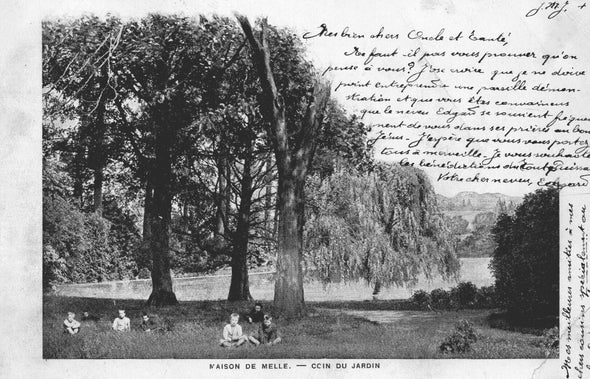 J.M.J. +
Mes bien chers Oncle et Tante,
Ne faut-il pas vous prouver qu'on
pense à vous? J'ose croire que je ne doive
point entreprendre une pareille démon-
stration et que vous êtes convaincus
que le neveu Edgard se souvient fréquem-
ment de vous dans ses prières au bon
Jésus. J'espère que vous vous portez
tous à merveille. Je vous souhaite
les bénédictions du tout puissant
Votre cher neveu, Edgard
Mes meilleures amitiés à mes
chers cousins spécialement
MAISON DE MELLE. — COIN DU JARDIN